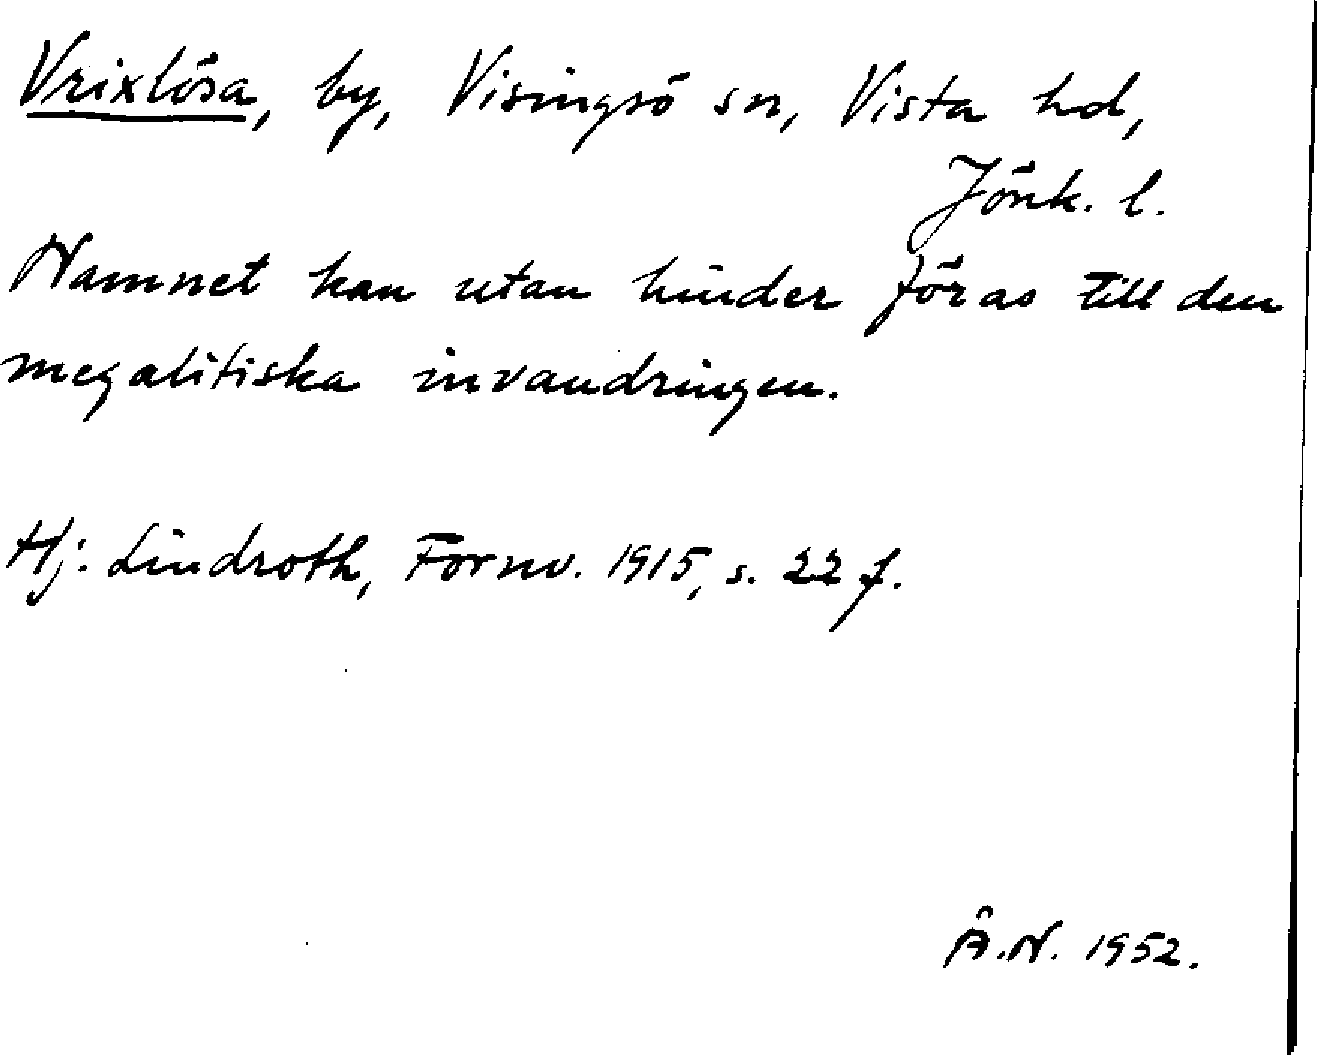 Vrixlösa, by, Visingsö sn, Vista hd,
Jönk. l.
Namnet kan utan hinder föras till den
megalitiska invandringen.
Hj. Lindroth, Fornv. 1915, s. 22 f.
Å.N. 1952.